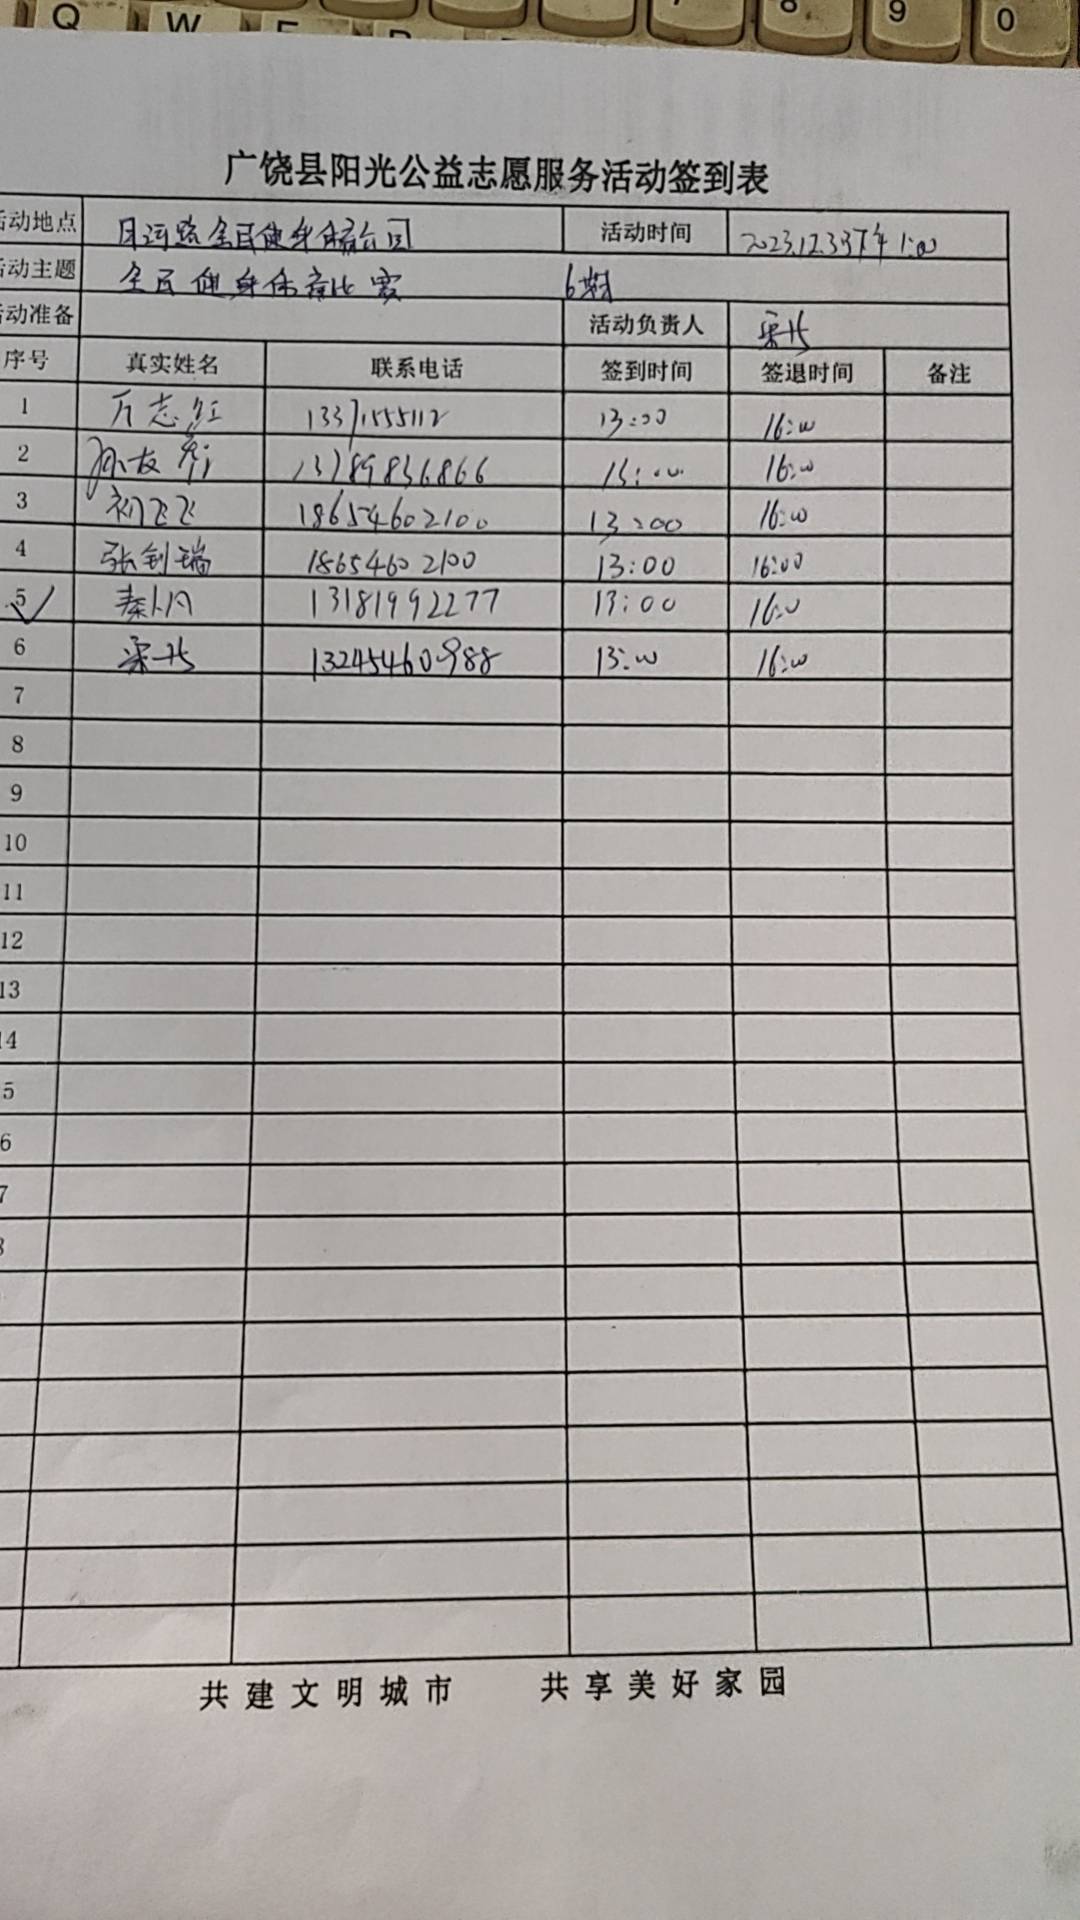 Q W E 8 9 0
广饶县阳光公益志愿服务活动签到表
活动地点 月河路全民健身体育公园 活动时间 2023.12.3日下午1:00
活动主题 全民健身体育比赛 6期
活动准备 活动负责人
序号 真实姓名 联系电话 签到时间 签退时间 备注
1 万志红 13371555112 13:00 16:00
2 13789836866 13:00 16:00
3 初飞飞 18654602100 13:00 16:00
4 张钊瑞 18654602100 13:00 16:00
5 秦小凡 13181992277 13:00 16:00
6 13245460988 13:00 16:00
7
8
9
10
11
12
13
14
5
6
7
8
共建文明城市 共享美好家园